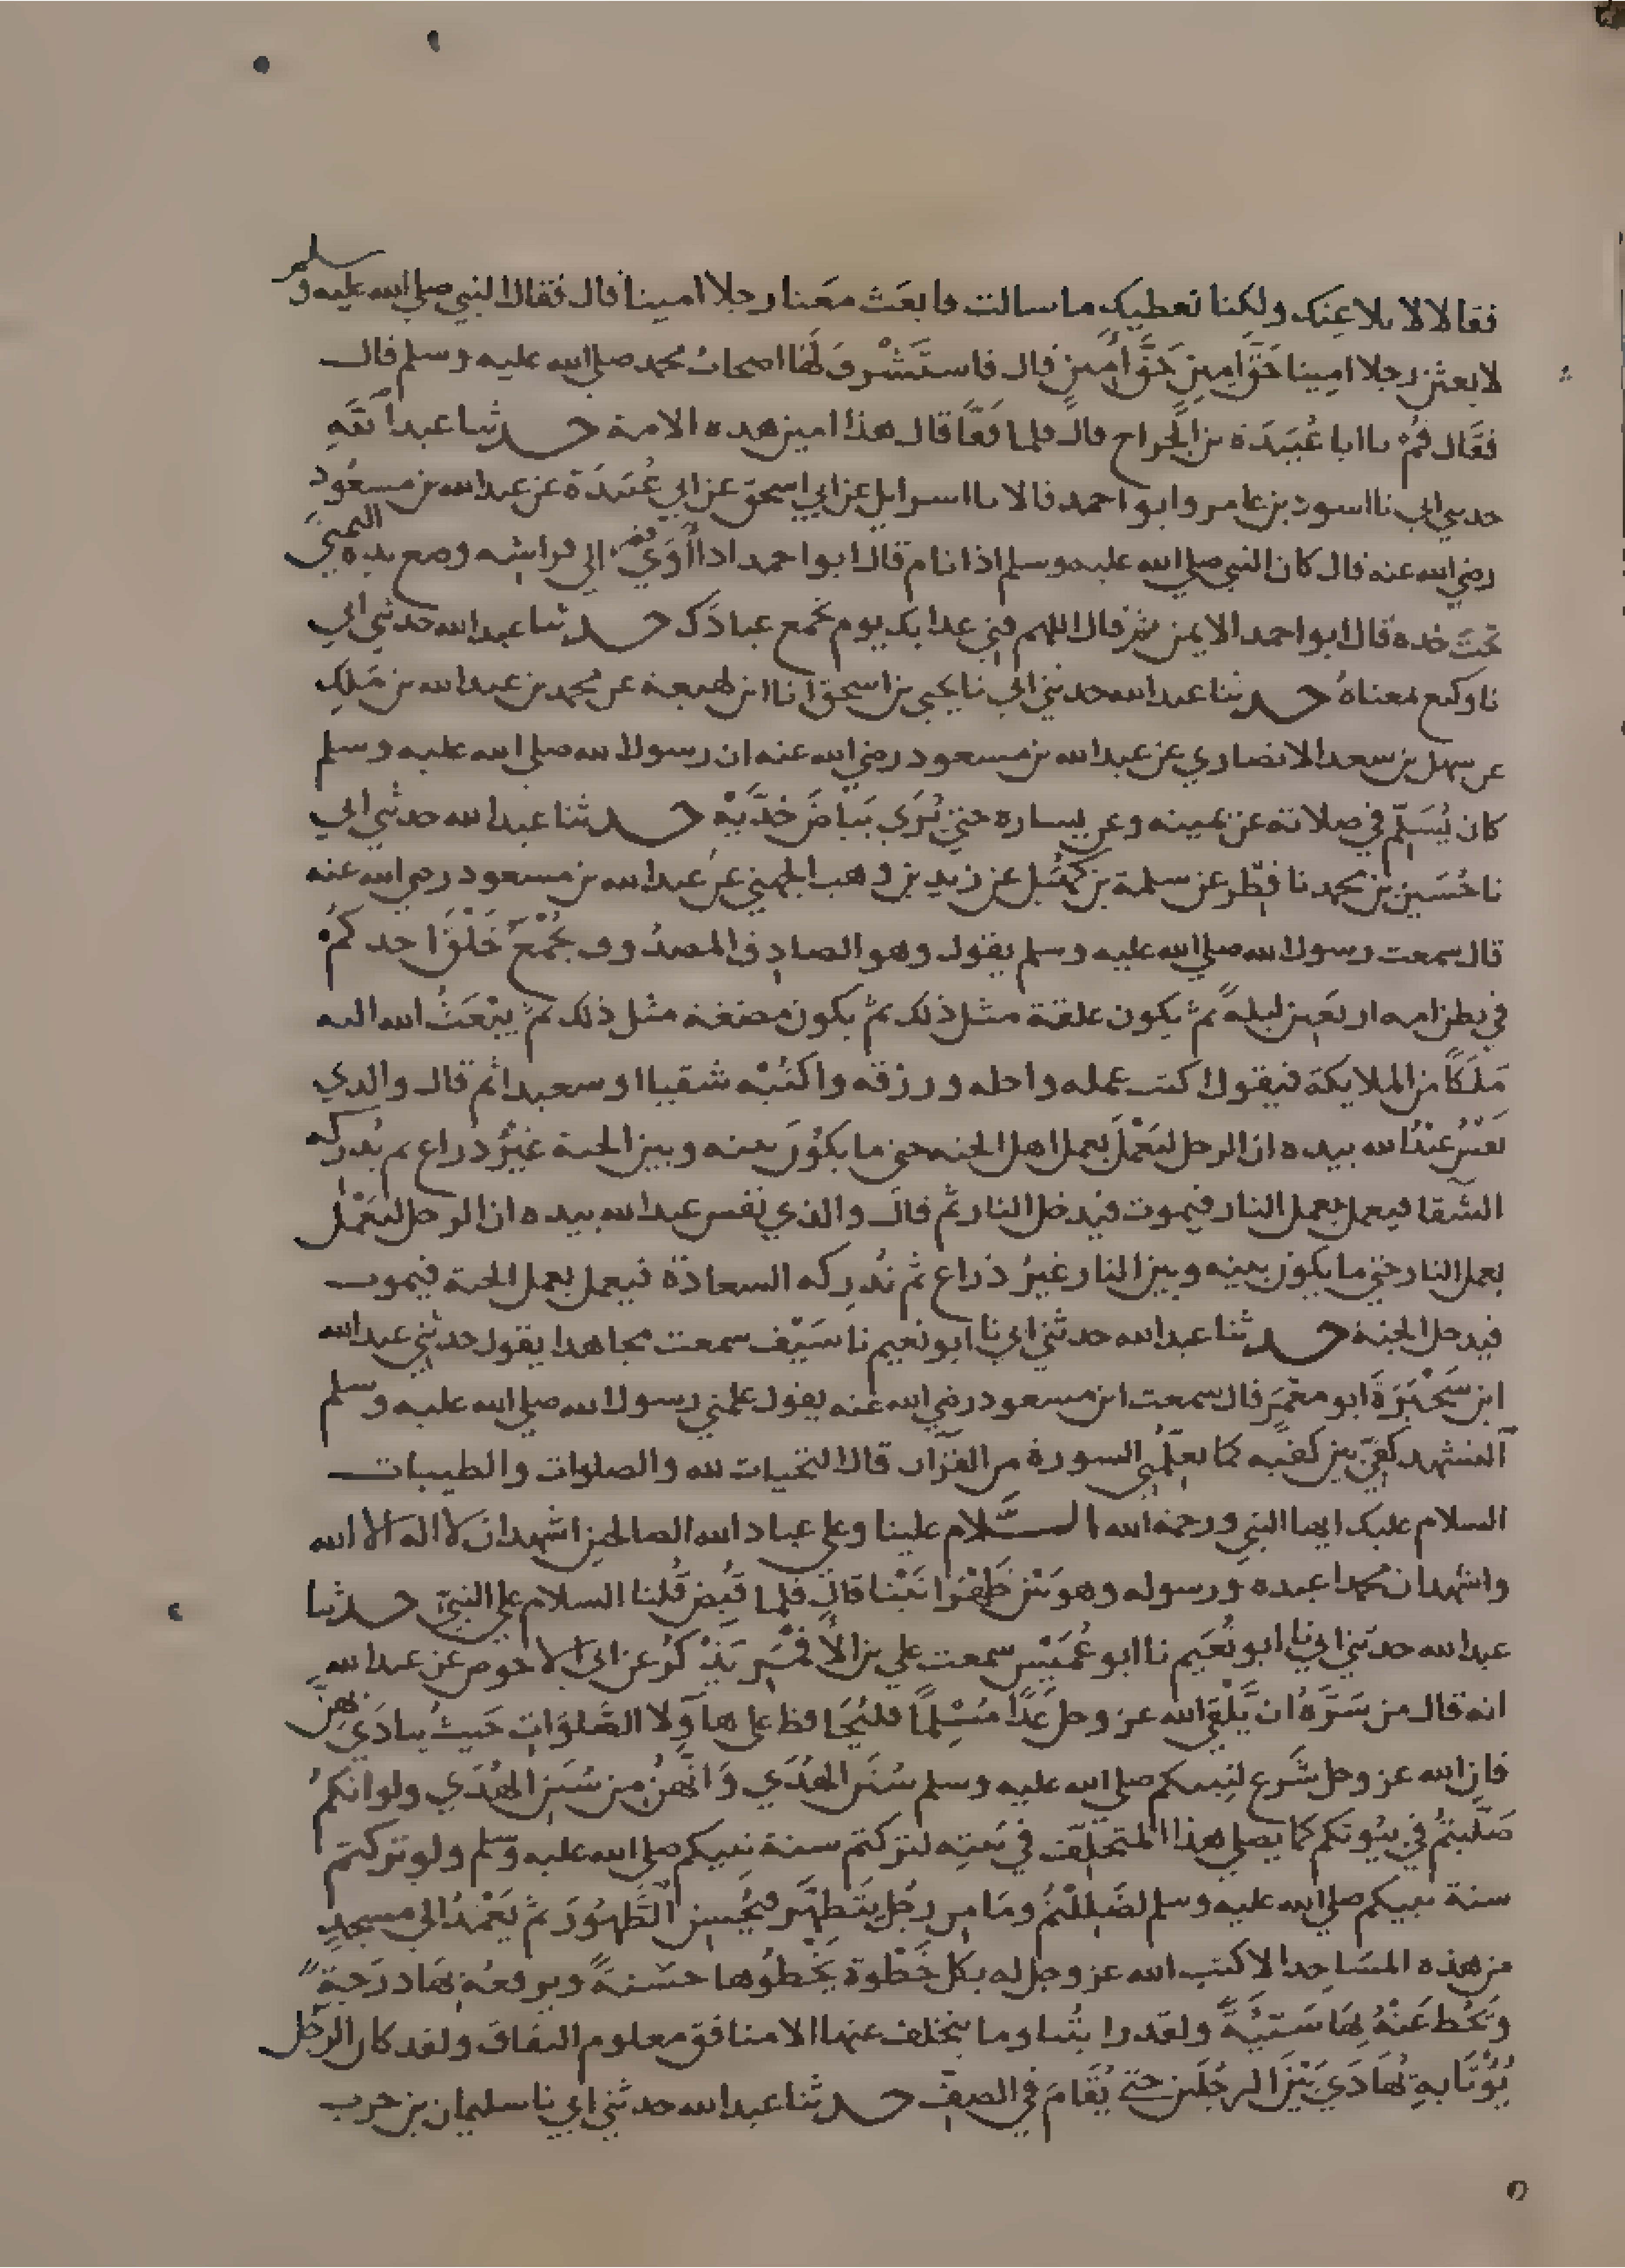 فقالا لا نلاعنك ولكنا نعطيك ما سالت فابعث معنا رجلا امينا قال فقال النبي صلى الله عليه وسلم
لابعثن رجلا امينا حَقَّ امِين حَقَّ اَمِين قال فاستَشْرفَ لَهَا اصحابُ محمد صلى الله عليه وسلم قال
فقَال قُمْ يا ابا عُبَيدَة بن الجَراح قال فلما قَفَّا قال هذا امين هذه الامة حدثنا عبد الله
حدثني ابي نا اسود بن عامر وابو احمد قالا نا اسرايل عن ابي اسحق عن ابي عُبَيدَة عن عبد الله بن مسعُود
رضي الله عنه قال كان النبي صلى الله عليه وسلم اذا نام قال ابو احمد اذا أَوَى الى فراشه وضع يده اليمنَى
تحتَ خده قال ابو احمد الايمن ثم قال اللهم قِنِي عذابك يوم تجمع عبادَك حدثنا عبد الله حدثني ابي
نا وكيع بمعناهُ حدثنا عبد الله حدثني ابي نا يحيى بن اسحق انا ابن لهيعة عن محمد بن عبد الله بن مَلِكِ
عن سهل بن سعد الانصاري عن عبد الله بن مسعود رضي الله عنه ان رسول الله صلى الله عليه وسلم
كان يُسَلِّم في صلاته عن يمينه وعن يساره حتى نُرَى بَيَاضَ خَدَّيْهِ حدثنا عبد الله حدثني ابي
نا حُسَين بن محمد نا فِطْر عن سلمة بن كُهَيْل عن زيد بن وهب الجهني عن عَبد الله بن مسعود رضي الله عنه
قال سمعت رسول الله صلى الله عليه وسلم يقول وهو الصادق المصدُوق يُجْمَعُ خَلْقُ احدكُمْ
في بطن امه اربَعِين ليلةً ثمّ يكون علقة مثل ذلك ثمّ يكون مضغة مثل ذلك ثمّ يبْعَثُ الله اليه
مَلَكًا من الملايكة فيقول اكتب عمله واجله ورزقه واكتُبْه شقيا او سعيدا ثم قال والذي
نَفْسُ عَبْدُ الله بيده ان الرجل ليَعْمَلُ بعمل اهل الجنه حتى ما يكُونَ بينه وبين الجنة غيرُ ذراع ثم يُدركه
الشَّقا فيعمل بعمل النار فيموت فيَدخل النار ثُم قالَ والذي نفس عبد الله بيده ان الرجل ليَعْمَلُ
بعمل النار حتى ما يكون بينه وبين النار غيرُ ذراع ثم تُدرِكه السعادَة فيعمل بعمل الجنة فيموت
فيدخل الجنة حدثنا عبد الله حدثني ابي نا ابو نعيم نا سَيْف سمعت مجاهدا يقول حدثني عبد الله
ابن سَخْبَرَةَ ابو معْمَر قال سمعت ابن مسعود رضي الله عنه يقول علمني رسول الله صلى الله عليه وسلم
التشهد كَفِّي بين كفَّيه كما يعَلّمُني السورة من القرآن قال التحيات لله والصلوات والطيبات
السلام عليك ايها النبي ورحمة الله السَّلام علينا وعلى عباد الله الصالحين اشهد ان لا اله الا الله
واشهد ان محمدا عبده ورسوله وهو بَيْن ظَهْرَانَيْنا قال فلما قُبِض قُلنا السلام على النبيّ حدثنا
عبد الله حدثني ابي نا ابو نُعَيم نا ابو عُمَيْس سمعت علي بن الاَقْمَر يَذْكُرُ عن ابي الاحوص عن عبد الله
انه قال من سَرَّهُ ان يَلْقَى الله عز وجل غَدًا مُسْلِمًا فليُحَافظ على هآولا الصَّلوَات حَيثُ ينادَى بهنَّ
فان الله عز وجل شَرع لنَبيكم صلى الله عليه وسلم سُنَن الهُدَى وَانَّهُنّ من سُنَن الهُدَى ولو انكُمْ
صَلَّيتُم في بيُوتكم كما يصلي هذا المتخلِّف في بَيتِه لتركتم سنة نبيكم صلى الله عليه وسلم ولو تركتم
سنة نبيكم صلى الله عليه وسلم لضَللْتمُ ومَا مِن رجُل يَتَطهَّر فيُحْسِن الطُّهُورَ ثمّ يَعْمدُ الى مسجدٍ
من هذه المسَاجِد الا كتب الله عز وجل له بكل خَطْوة يَخْطُوها حسَنةً ويرفعهُ بهَا درَجةً
وَيَحُط عَنْهُ بِهَا سَيِّيَةً ولقَد رايتُنا وما يتخلف عنها الا منافق معلوم النفاق ولقد كان الرجُل
يُوتَا بهِ يُهَادَى بَيْنَ الرجُلَين حتى يُقَامَ في الصفّ حدثنا عبد الله حدثني ابي نا سليمان بن حرب